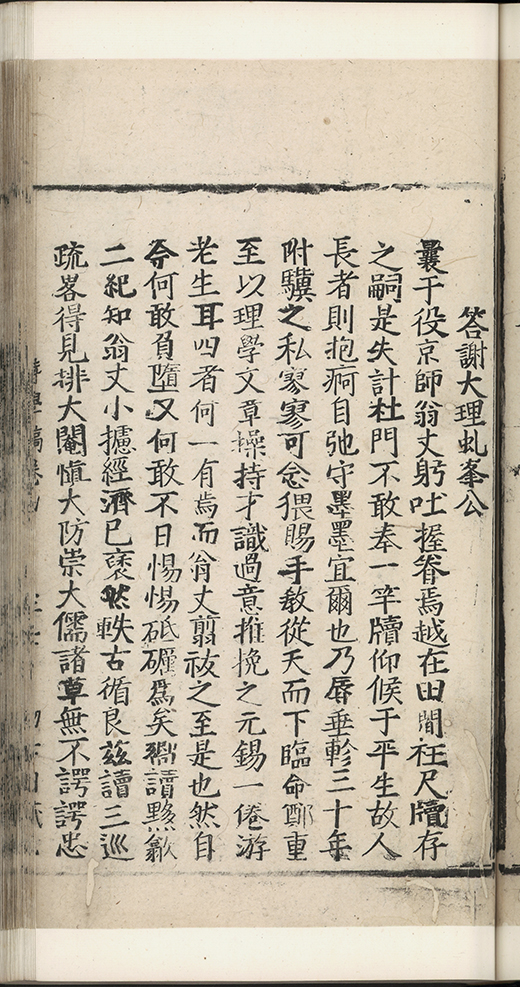 答謝大理虬峯公
曩于役京師翁丈躬吐握眷焉越在田間枉尺牘存
之嗣是失計杜門不敢奉一竿牘仰候于平生故人
長者則抱痾自弛守墨墨宜爾也乃辱垂軫三十年
附驥之私寥寥可念猥賜手教從天而下臨命鄭重
至以理學文章操持才識過意推挽之元錫一倦游
老生耳四者何一有焉而翁丈翦祓之至是也然自
今何敢負墮又何敢不日惕惕砥礪爲矣齋讀黥歙
二紀知翁丈小攄經濟已裦然軼古循良茲讀三巡
疏畧得見排大閹慎大防崇大儒諸草無不諤諤忠